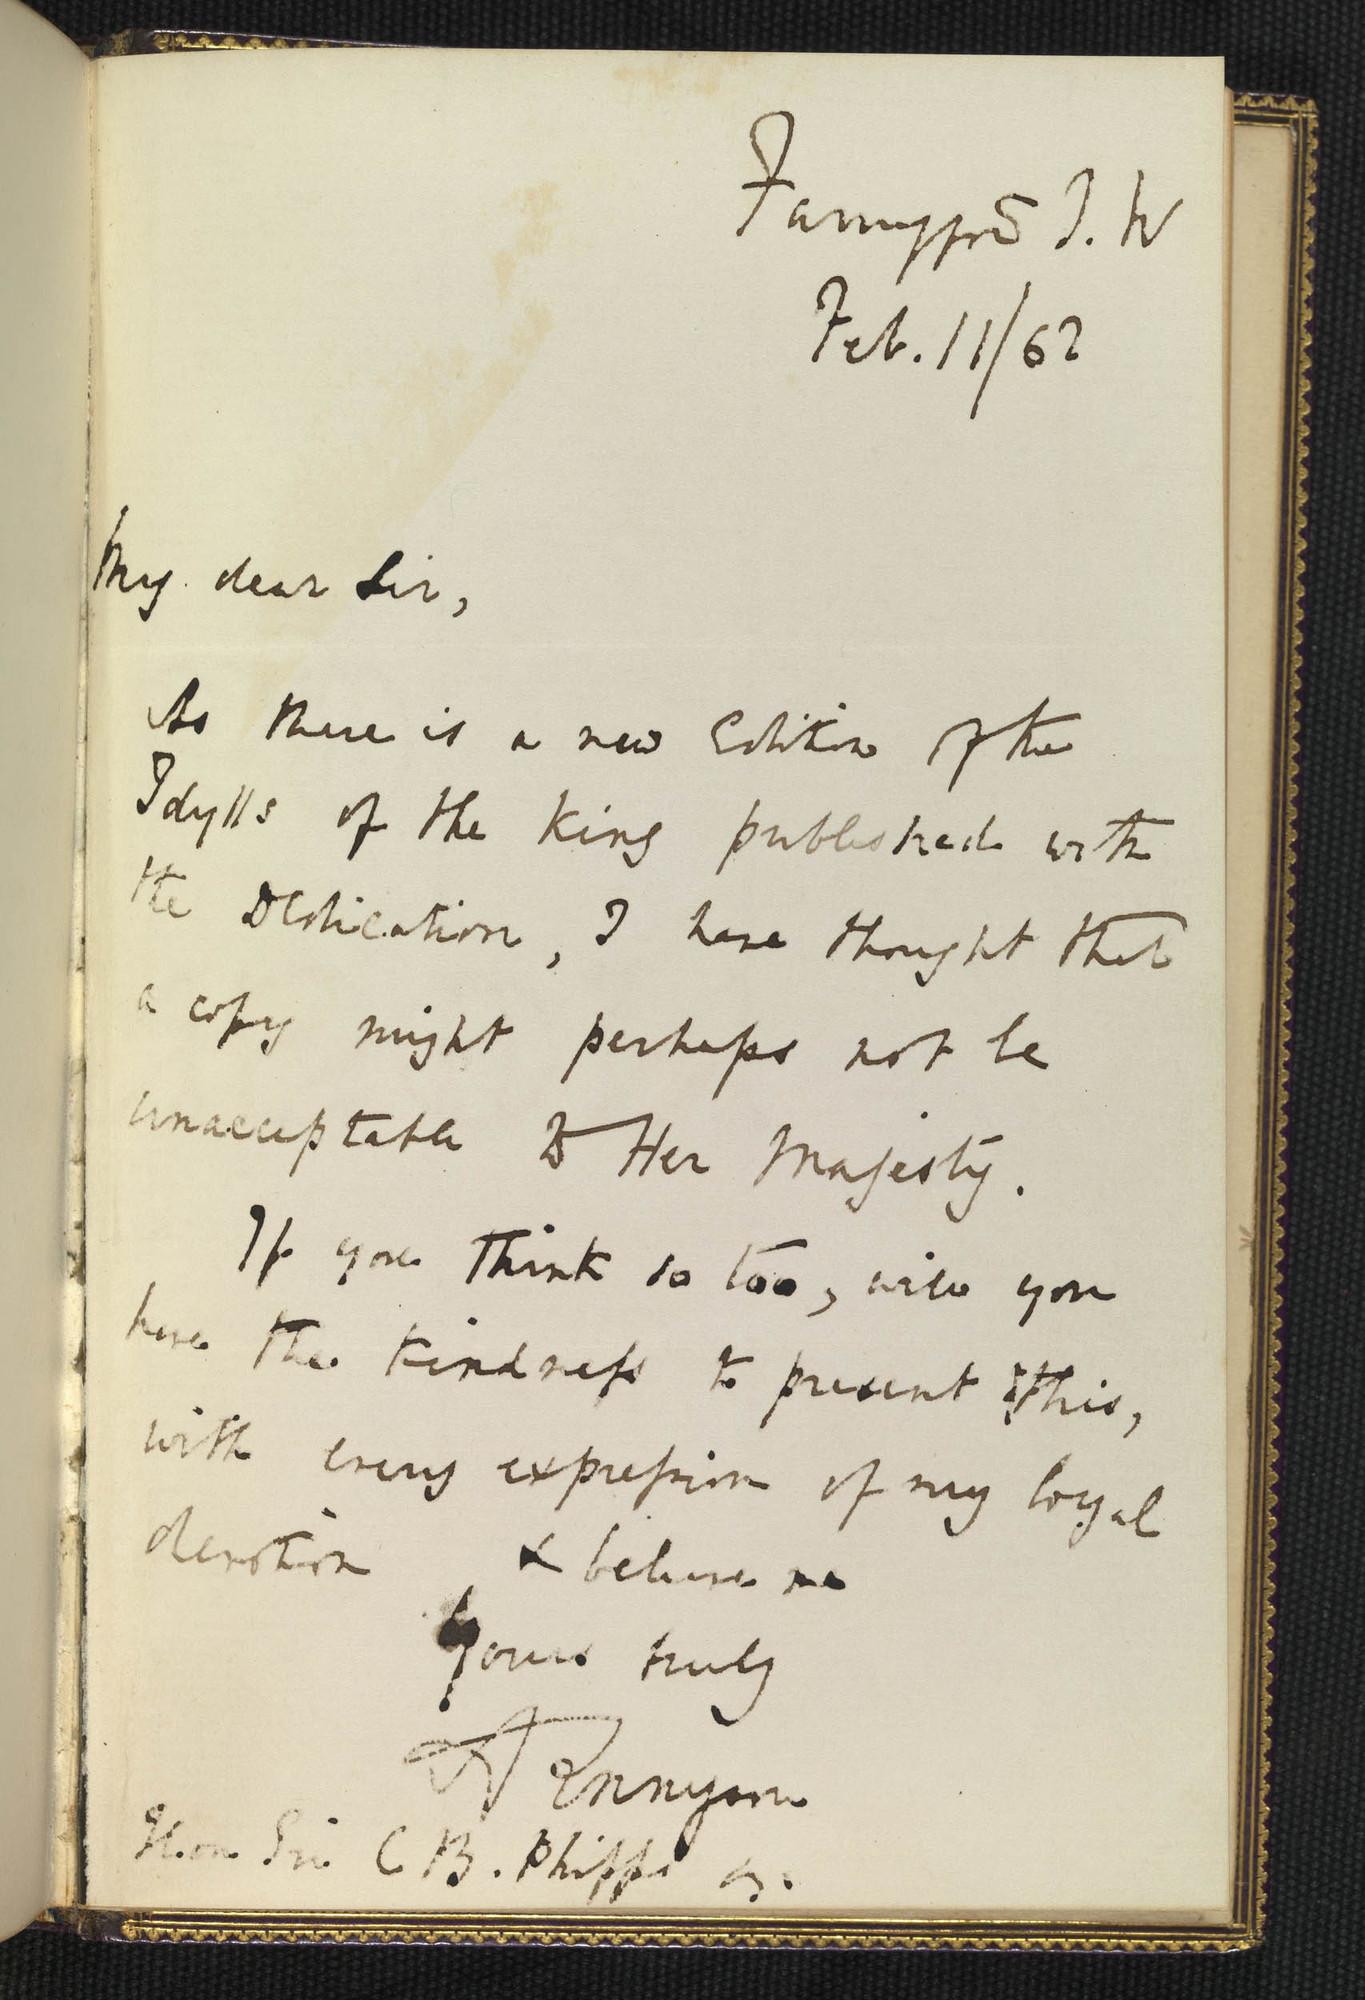 Farringford I. W
Feb. 11/62
My dear Sir,
As there is a new Edition of the
Idylls of the King published with
the Dedication, I have thought that
a copy might perhaps not be
unacceptable to Her Majesty.
If you think so too, will you
have the kindness to present this,
with every expression of my loyal
devotion & believe me
Yours truly
A Tennyson
Hon Sir C B. Phipps